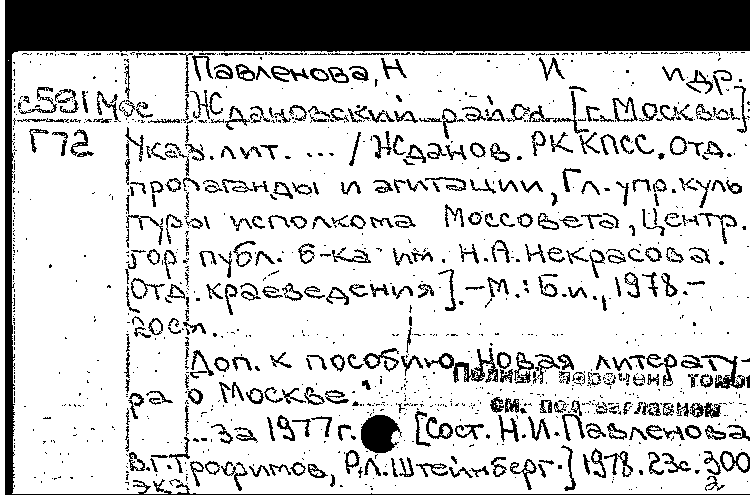 Павленова, Н И и др.
с591Мос Ждановский район [г. Москвы]:
Г72 Указ. лит. ... / Жданов. РК КПСС. Отд.
пропаганды и агитации, Гл. упр. куль
туры исполкома Моссовета, Центр.
гор. публ. б-ка им. Н.А. Некрасова.
[Отд. краеведения]. - М.: Б.и., 1978. -
20см.
Доп. к пособию „Новая литерату-
Полный перечень томов
ра о Москве."
см. под заглавием
... за 1977г. [Сост. Н.И. Павленова
В.Г. Трофимов, Р.Л. Штейнберг.] 1978. 23с. 300
экз. 2